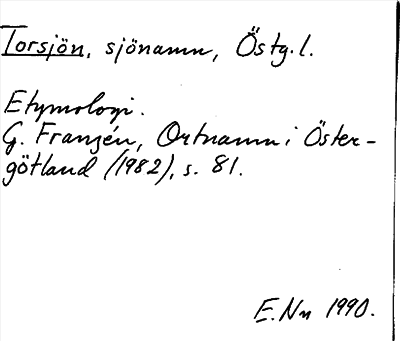 Torsjön, sjönamn, Östg. l.
Etymologi.
G. Franzén, Ortnamn i Öster-
götland (1982), s. 81.
E. Nn 1990.